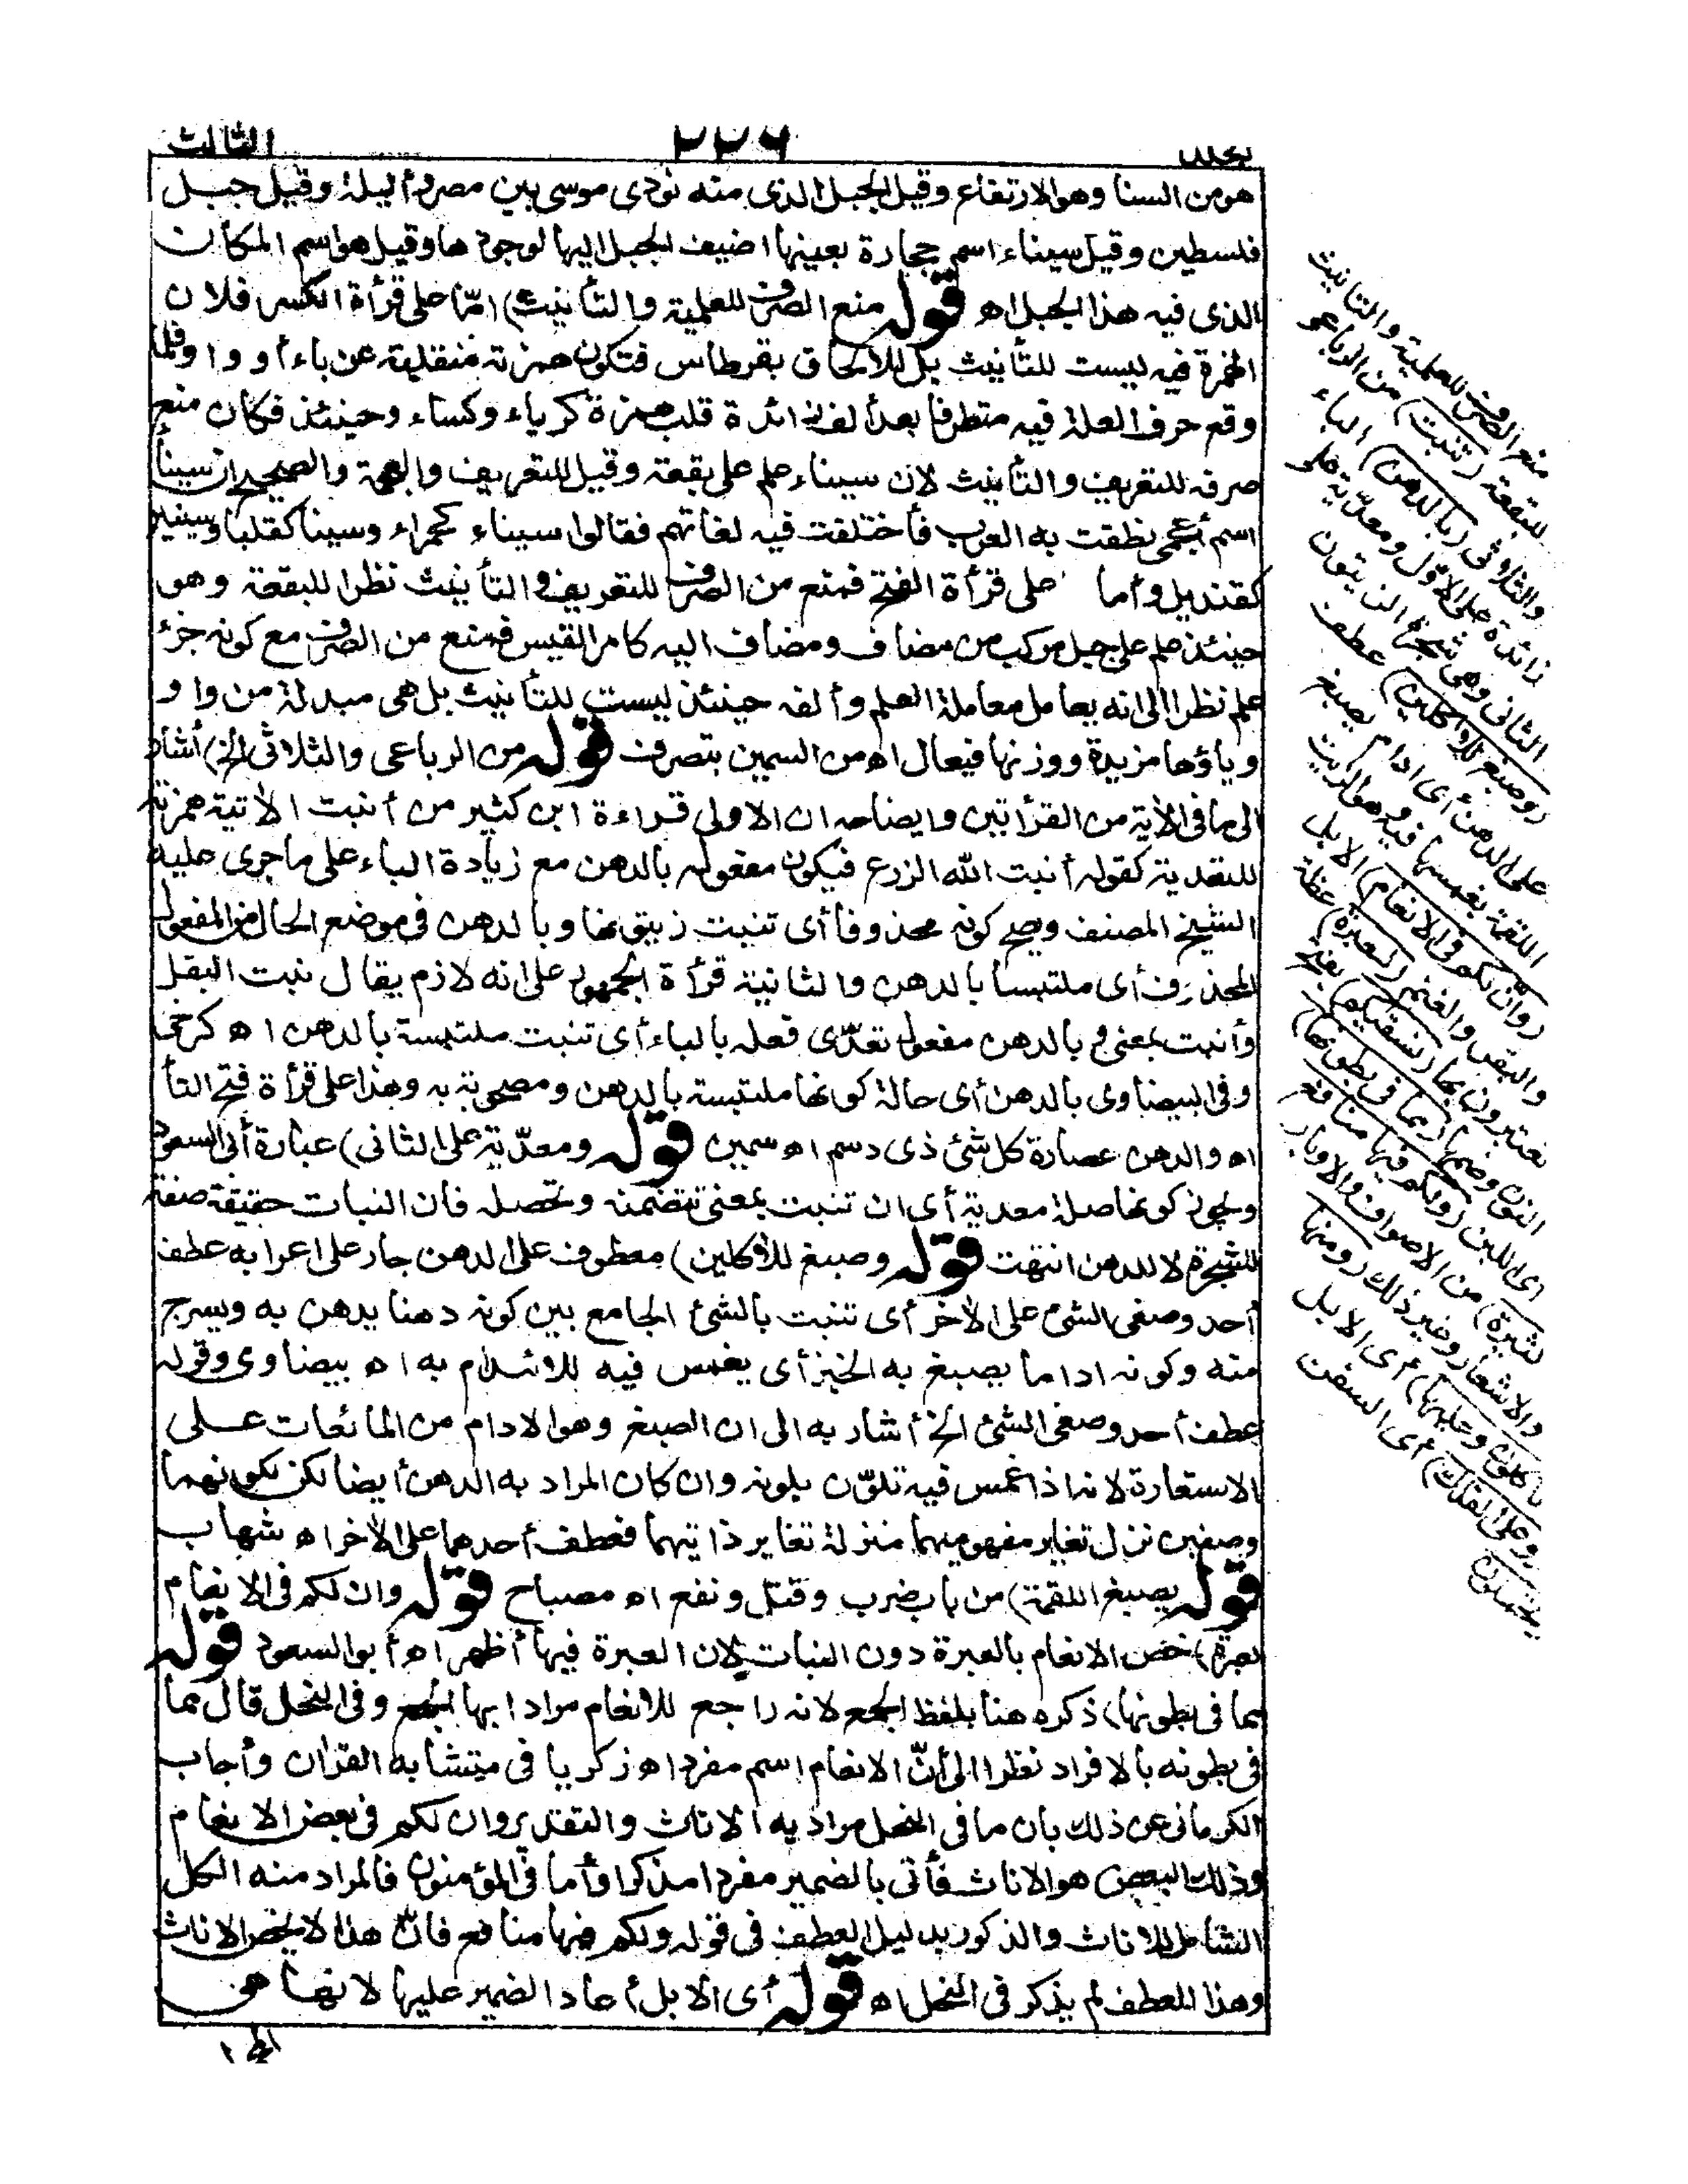 الثالث ٢٢٦ بجلد
هو من السنا وهو الارتفاع وقيل الجبل الذى منه نودى موسى بين مصر وأيلة وقيل جبل
فلسطين وقيل سيناء اسم حجارة بعينها اضيف الجبل اليها لوجودها وقيل هو اسم المكان
الذى فيه هذا الجبل اه قوله منع الصرف للعلمية والتأنيث) امّا على قرأة الكسر فلان
الهمزة فيه ليست للتأنيث بل للالحاق بقرطاس فتكون همزته منقلبة عن ياء أو واو فلما
وقع حرف العلة فيه متطرفا بعد ألف زائدة قلب همزة كرياء وكساء وحينئذ فكان منع
صرفه للتعريف والتأنيث لان سيناء علم على بقعة وقيل للتعريف والعجمة والصحيح ان سينأ
اسم أعجمى نطقت به العرب فأختلفت فيه لغاتهم فقالوا سيناء كحمراء وسينا كقلبا وسينير
كقنديل وأما على قرأة الفتح فمنع من الصرف للتعريف والتأنيث نظرا للبقعة وهو
حينئذ علم على جبل مركب من مضاف ومضاف اليه كامر القيس فمنع من الصرف مع كونه جزء
علم نظرا الى انه يعامل معاملة العلم وألفه حينئذ ليست للتأنيث بل هى مبدلة من واو
وياؤها مزيدة ووزنها فيعال اه من السمين بتصرف قوله من الرباعى والثلاثى الخ) أشار
الى ما فى الأية من القرأتين وايضاحه ان الاولى قراءة ابن كثير من أنبت الأتية همزته
للتعدية كقوله أنبت الله الزرع فيكون مفعوله بالدهن مع زيادة الباء على ما جرى عليه
الشيخ المصنف وصح كونه محذوفا أى تنبت زيتونها وبالدهن فى موضع الحال من المفعول
المحذوف أى ملتبسا بالدهن والثانية قرأة الجمهور على انه لازم يقال نبت البقل
وأنبت بمعنى وبالدهن مفعول تعدّى فعله بالباء أى تنبت ملتبسة بالدهن اه كرخى
وفى البيضاوى بالدهن أى حالة كونها ملتبسة بالدهن ومصحوبة به وهذا على قرأة فتح التأ
اه والدهن عصارة كل شئ ذى دسم اه سمين قوله ومعدّية على الثانى) عبارة أبى السعود
ويجوز كونها صلة معدية أى ان تنبت بمعنى تتضمنه وتحصله فان النبات حقيقة صفة
للشجرة لا للدهن انتهت قوله وصبغ للأكلين) معطوف على الدهن جار على اعرابه عطف
أحد وصفى الشئ على الأخر أى تنبت بالشئ الجامع بين كونه دهنا يدهن به ويسرج
منه وكونه اداما يصبغ به الخبز أى يغمس فيه للائتدام به اه بيضاوى وقوله
عطف أحد وصفى الشئ الخ أشار به الى ان الصبغ وهو الادام من المائعات على
الاستعارة لانه اذا غمس فيه تلوّن بلونه وان كان المراد به الدهن أيضا لكن لكونهما
وصفين نزل تغاير مفهوميهما منزلة تغاير ذاتيهما فعطف أحدهما على الأخر اه شهاب
قوله يصبغ اللقمة) من باب ضرب وقتل ونفع اه مصباح قوله وان لكم فى الانعام
لعبرة) خص الانعام بالعبرة دون النبات لان العبرة فيها أظهر اه أبو السعود قوله
مما فى بطونها) ذكره هنا بلفظ الجمع لانه راجع للانعام مرادا بها الجمع وفى النحل قال مما
فى بطونه بالافراد نظرا الى أنّ الانعام اسم مفرد اه زكريا فى متشابه القرأن وأجاب
الكرمانى عن ذلك بان ما فى النحل مراد به الاناث والتقدير وان لكم فى بعض الانعام
وذلك البعض هو الاناث فأتى بالضمير مفردا مذكرا وأما فى المؤمنون فالمراد منه الكل
الشامل للاناث والذكور بدليل العطف فى قوله ولكم فيها منافع فانّ هذا لا يخص الاناث
وهذا العطف لم يذكر فى النحل اه قوله أى الابل) عاد الضمير عليها لانها هى
منع الصرف للعلمية والتانيث
للبقعة (تنبت) من الرباعى
والثلاثى (بالدهن) الباء
زائدة على الاوّل ومعدّية على
الثانى وهى شجرة الزيتون
(وصبغ للاكلين) عطف
على الدهن أى ادام يصبغ
اللقمة بغمسها فيه وهو الزيت
(وانّ لكم فى الانعام) الابل
والبقر والغنم (لعبرة) عظة
تعتبرون بها (نسقيكم) بفتح
النون وضمها (مما فى بطونها)
اى اللبن (ولكم فيها منافع
كثيرة) من الاصواف والاوبار
والاشعار وغير ذلك (ومنها
تاكلون وعليها) أى الابل
(وعلى الفلك) أى السفن